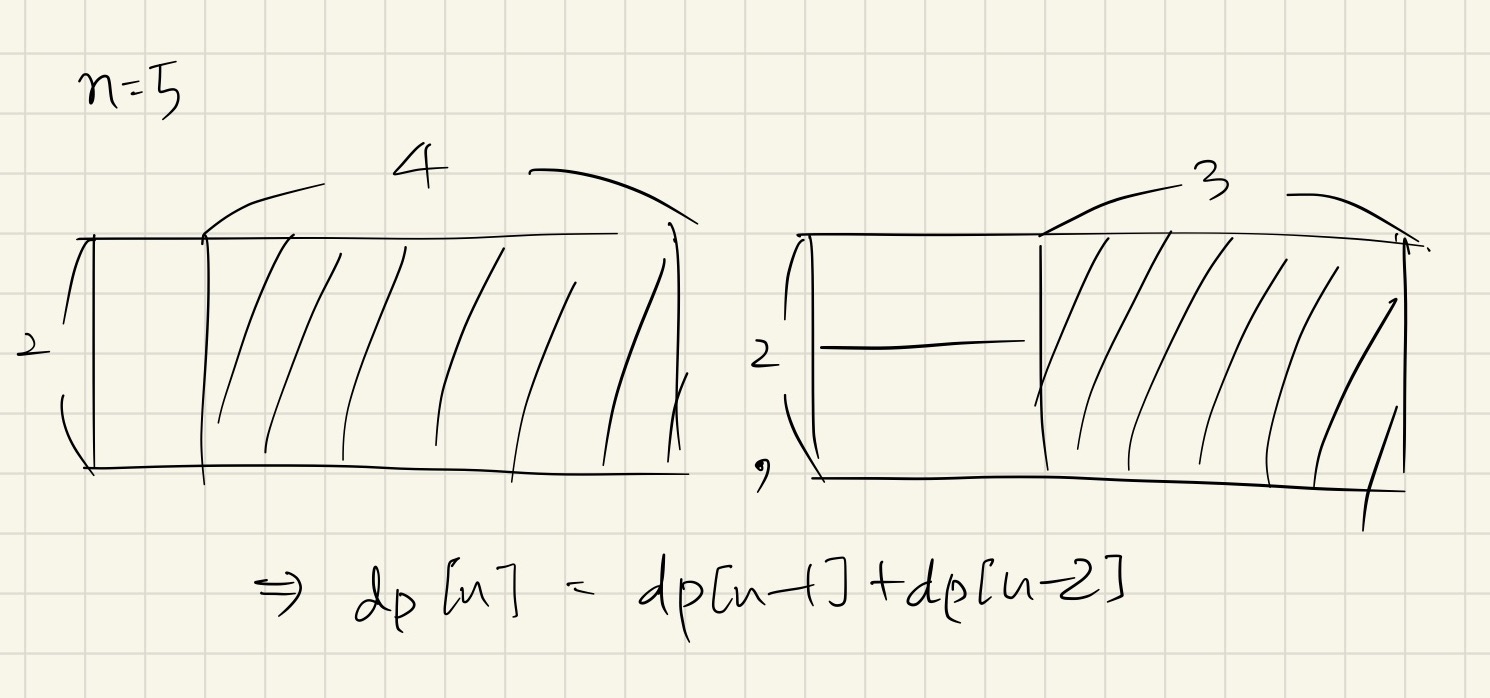 n=5
4
3
2
2
,
⇒ dp[n] = dp[n-1]+dp[n-2]